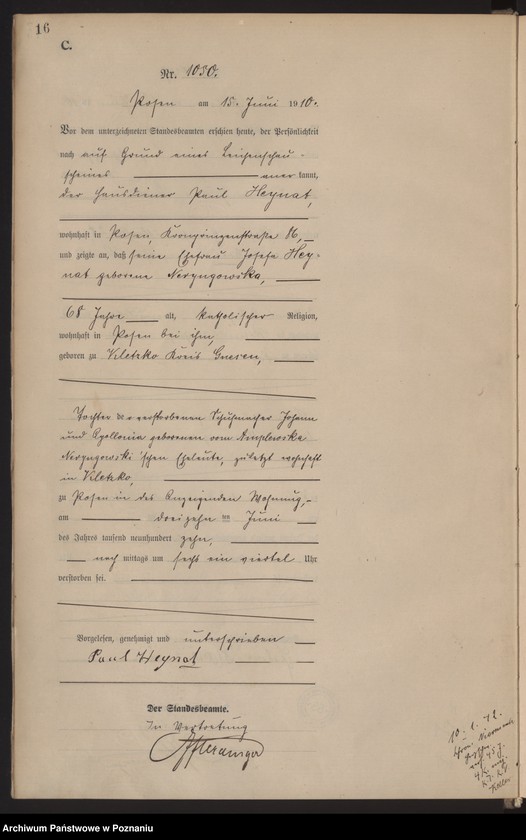 16
C.
Nr. 1050.
Posen am 15. Juni 1910.
Vor dem unterzeichneten Standesbeamten erschien heute, der Persönlichkeit
nach auf Grund eines Leichenschau-
scheines anerkannt,
der Hausdiener Paul Heynat,
wohnhaft in Posen, Kronprinzenstraße 86,
und zeigte an, daß seine Ehefrau Josefa Hey-
nat geborene
68 Jahre alt, katholischer Religion,
wohnhaft in Posen bei ihm,
geboren zu Kletzko Kreis Gnesen,
Tochter der verstorbenen Schuhmacher Johann
und Apollonia geborenen
'schen Eheleute, zuletzt wohnhaft
in Kletzko,
zu Posen in des Anzeigenden Wohnung,
am dreizehnten Juni
des Jahres tausend neunhundert zehn,
nach mittags um sechs ein viertel Uhr
verstorben sei.
Vorgelesen, genehmigt und unterschrieben
Paul Heynat
Der Standesbeamte.
In Vertretung
10. 1. 72.
Archiwum Państwowe w Poznaniu